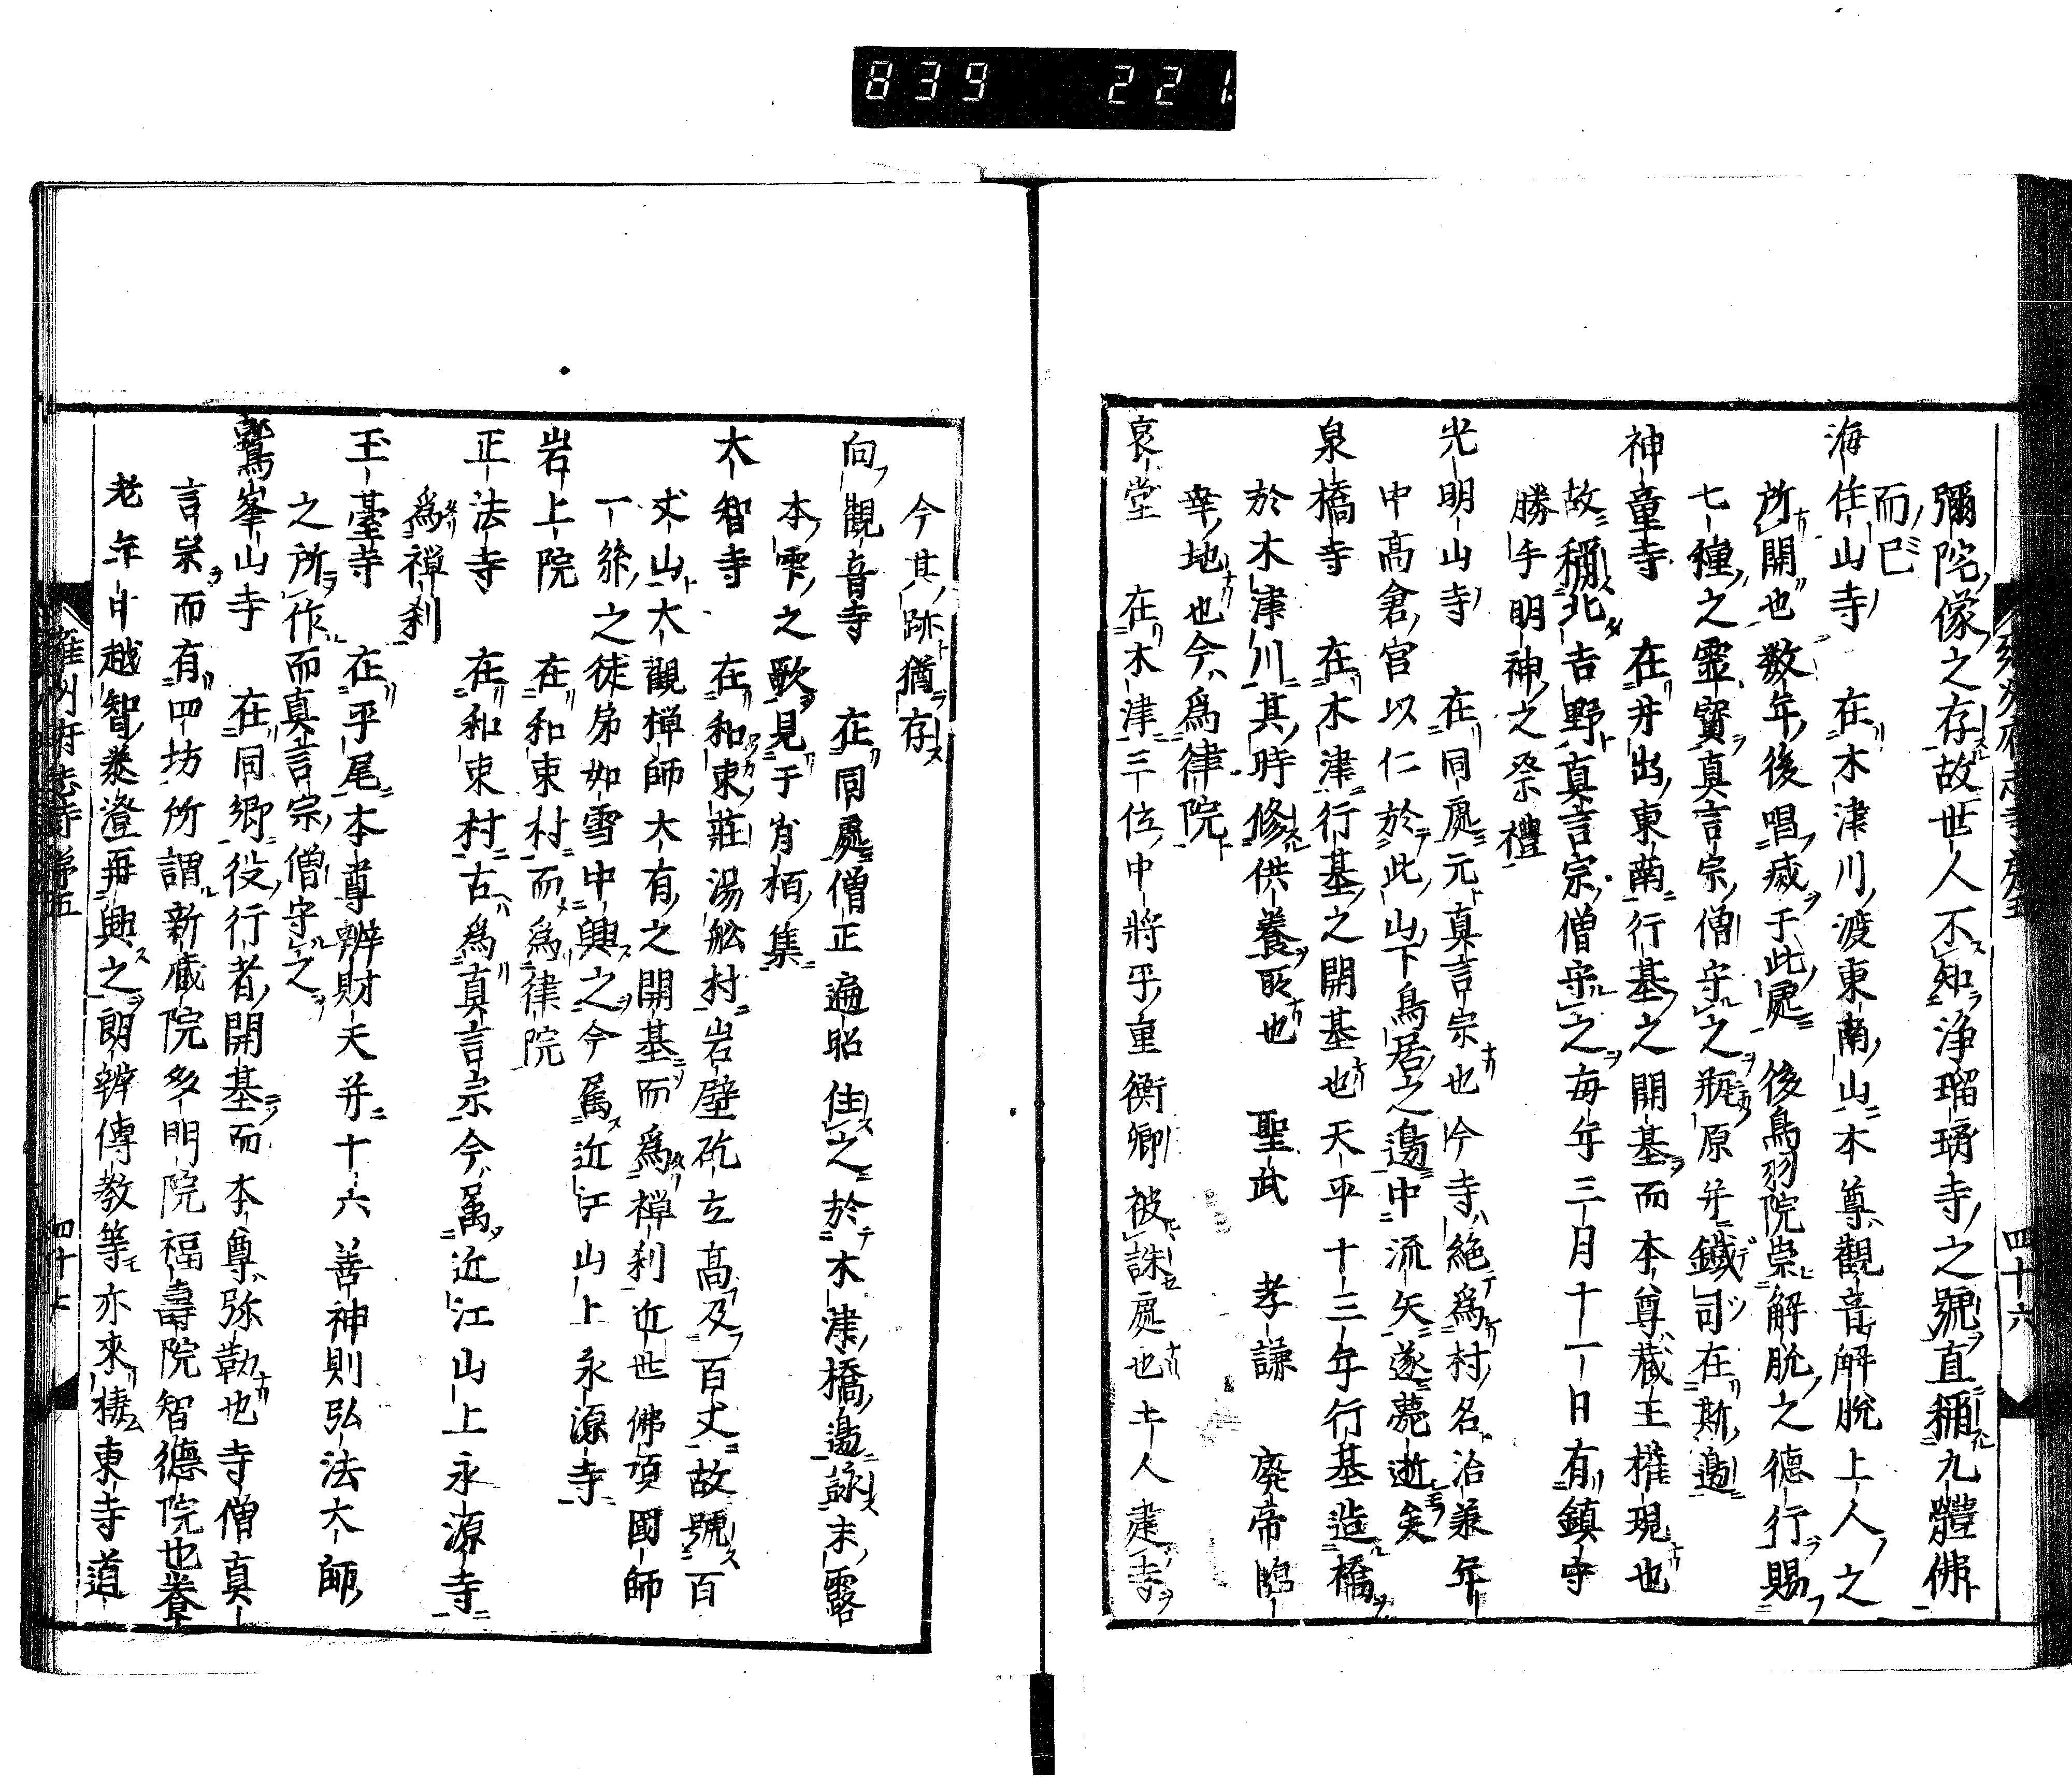 839 221
彌陀像之存故世人不知浄瑠璃寺之號直稱九體佛
而已
海住山寺 在木津川渡東南山本尊觀音解脫上人之
所開也數年後唱寂于此處 後鳥羽院崇解脫之德行賜
七種之靈寶真言宗僧守之瓶原并鐵司在斯邊
神童寺 在井出東南行基之開基而本尊藏王權現也
故稱北吉野真言宗僧守之每年三月十一日有鎮守
勝手明神之祭禮
光明山寺 在同處元真言宗也今寺絕為村名治兼年
中高倉宮以仁於此山下鳥居之邊中流矢遂薨逝矣
泉橋寺 在木津行基之開基也天平十三年行基造橋
於木津川其時修供養所也 聖武 孝謙 廢帝臨
幸地也今為律院
哀堂 在木津三位中將平重衡卿被誅處也土人建寺
四十六
今其跡猶存
向觀音寺 在同處僧正遍昭住之於木津橋邊詠末露
本雫之歌見于肖柏集
大智寺 在和束莊湯舩村岩壁矻立高及百丈故號百
丈山大觀禅師大有之開基而為禅刹近世佛頂國師
一絲之徒弟如雪中興之今属近江山上永源寺
岩上院 在和束村而為律院
正法寺 在和束村古為真言宗今属近江山上永源寺
為禅刹
玉臺寺 在平尾本尊辨財天并十六善神則弘法大師
之所作而真言宗僧守之
鷲峯山寺 在同郷役行者開基而本尊弥勒也寺僧真
言宗而有四坊所謂新蔵院多門院福壽院智德院也養
老年中越智泰澄再興之朗辨傳教等亦來棲東寺道
雍州府志寺第五 四十七